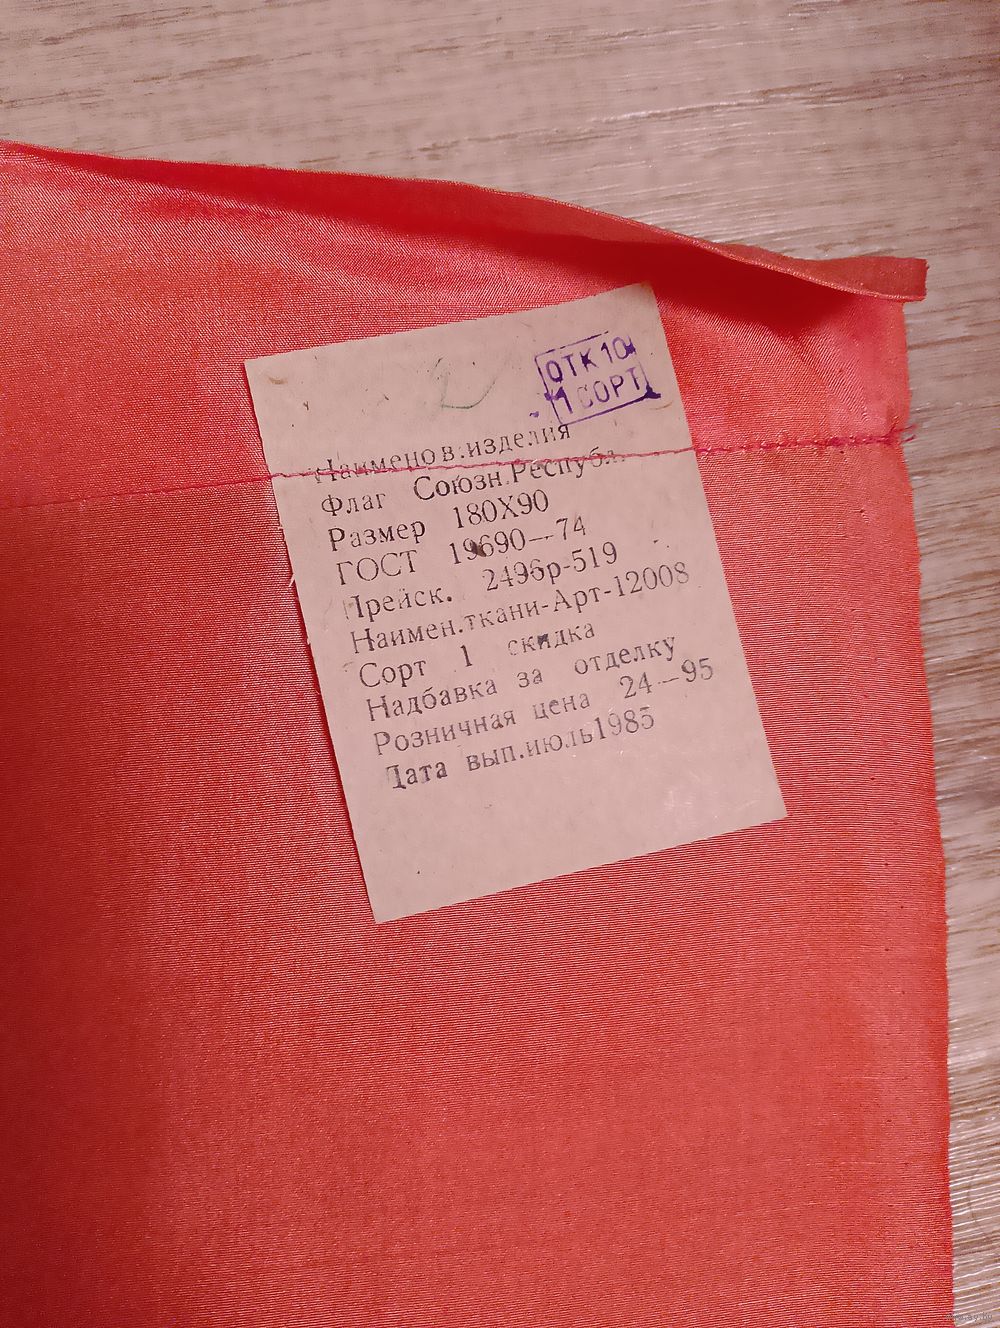 ОТК 10
1 СОРТ
Наименов.изделия
Флаг Союзн.Республ.
Размер 180Х90
ГОСТ 19690—74
Прейск. 2496р-519
Наимен.ткани-Арт-12008
Сорт 1 скидка
Надбавка за отделку
Розничная цена 24—95
Дата вып.июль1985